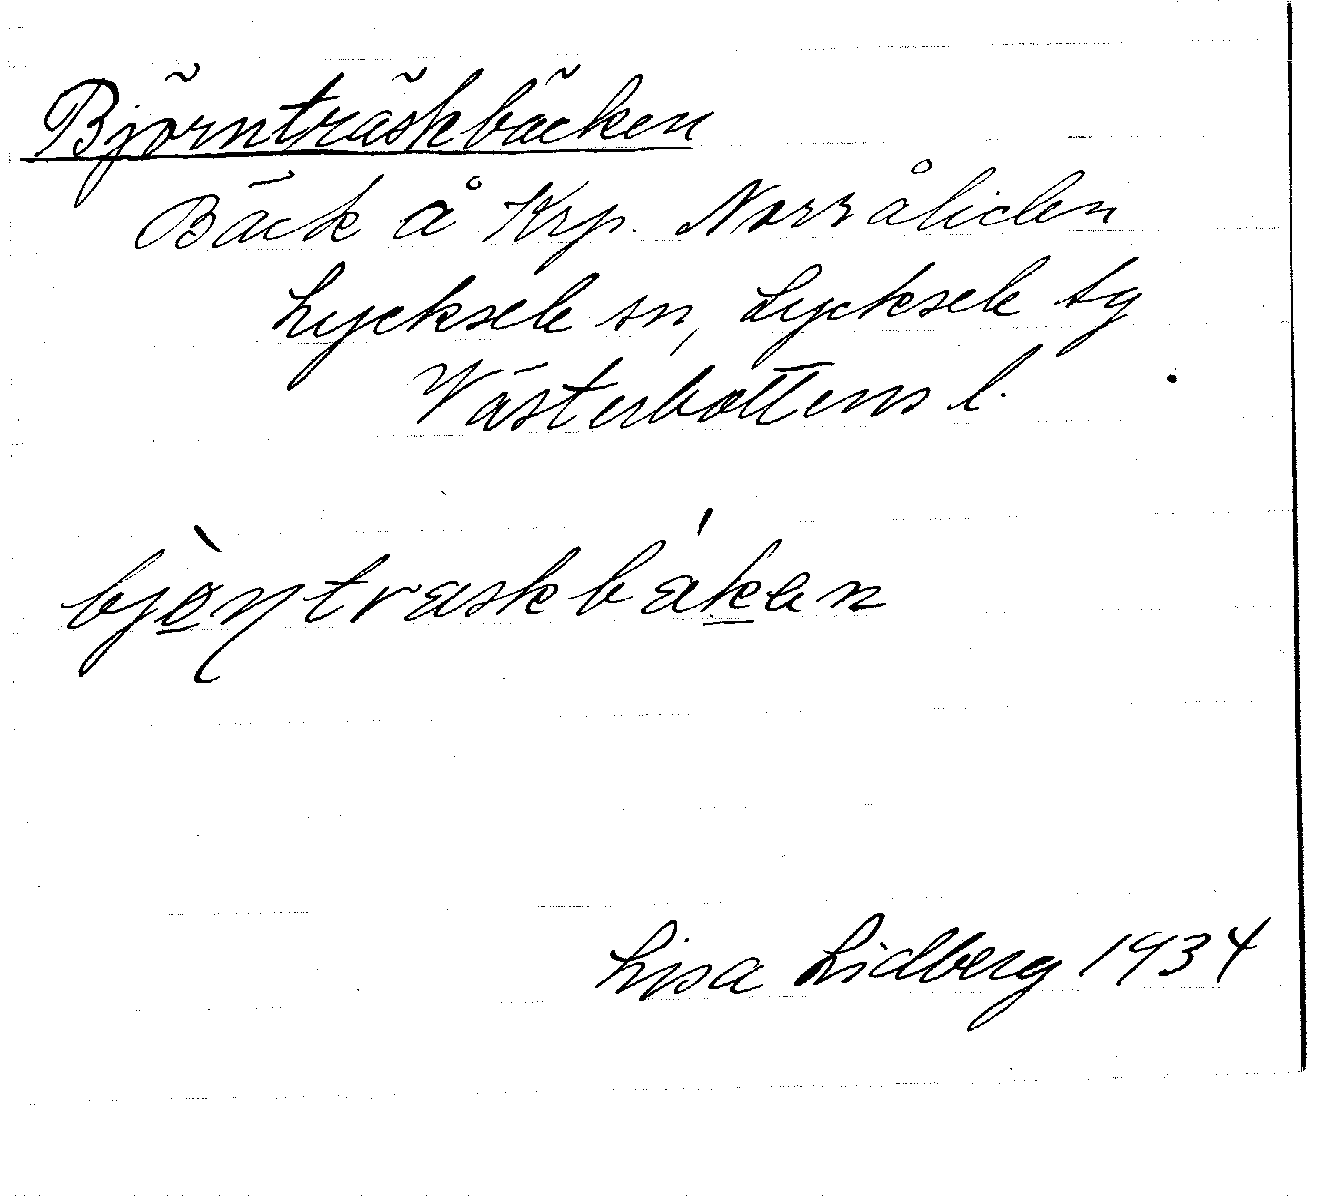 Björnträskbäcken
Bäck å Krp. Norråliden
Lycksele sn, Lycksele tg
Västerbottens l.
bjò̱ŋtraskbáḵen
Lisa Lidberg 1934